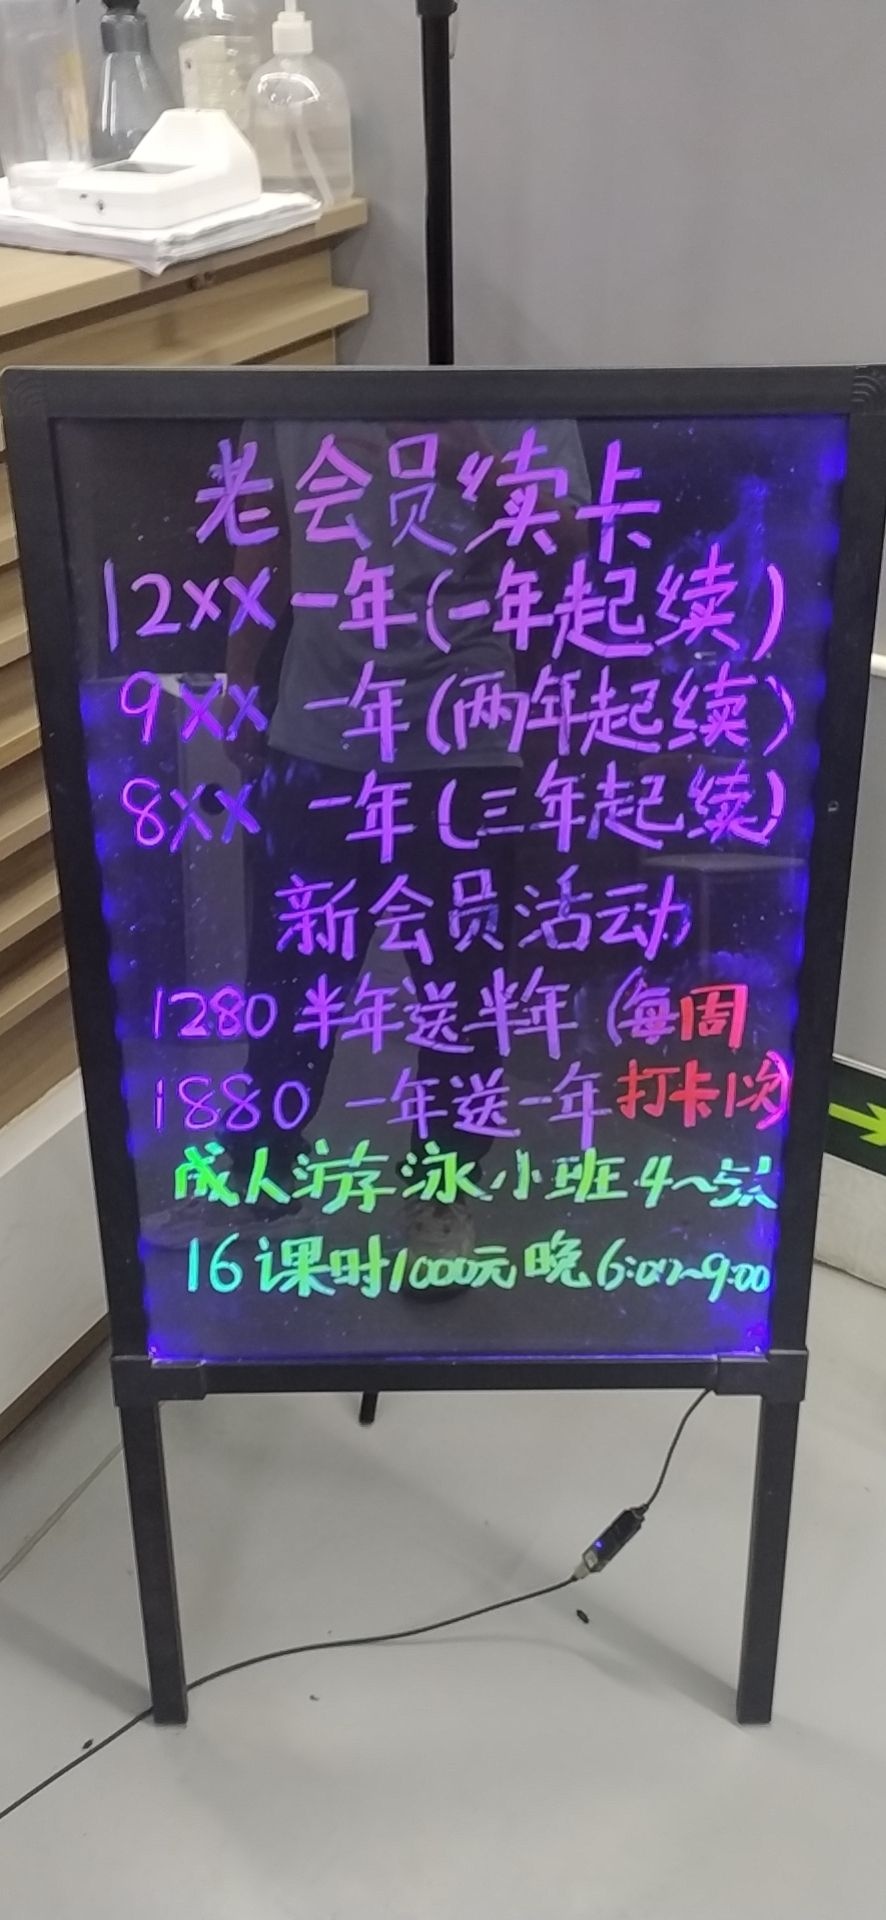 老会员续卡
12xx一年(一年起续)
9xx 一年(两年起续)
8xx 一年(三年起续)
新会员活动
1280 半年送半年 (每周
1880 一年送一年 打卡1次)
成人游泳小班 4~5人
16课时1000元 晚6:00~9:00